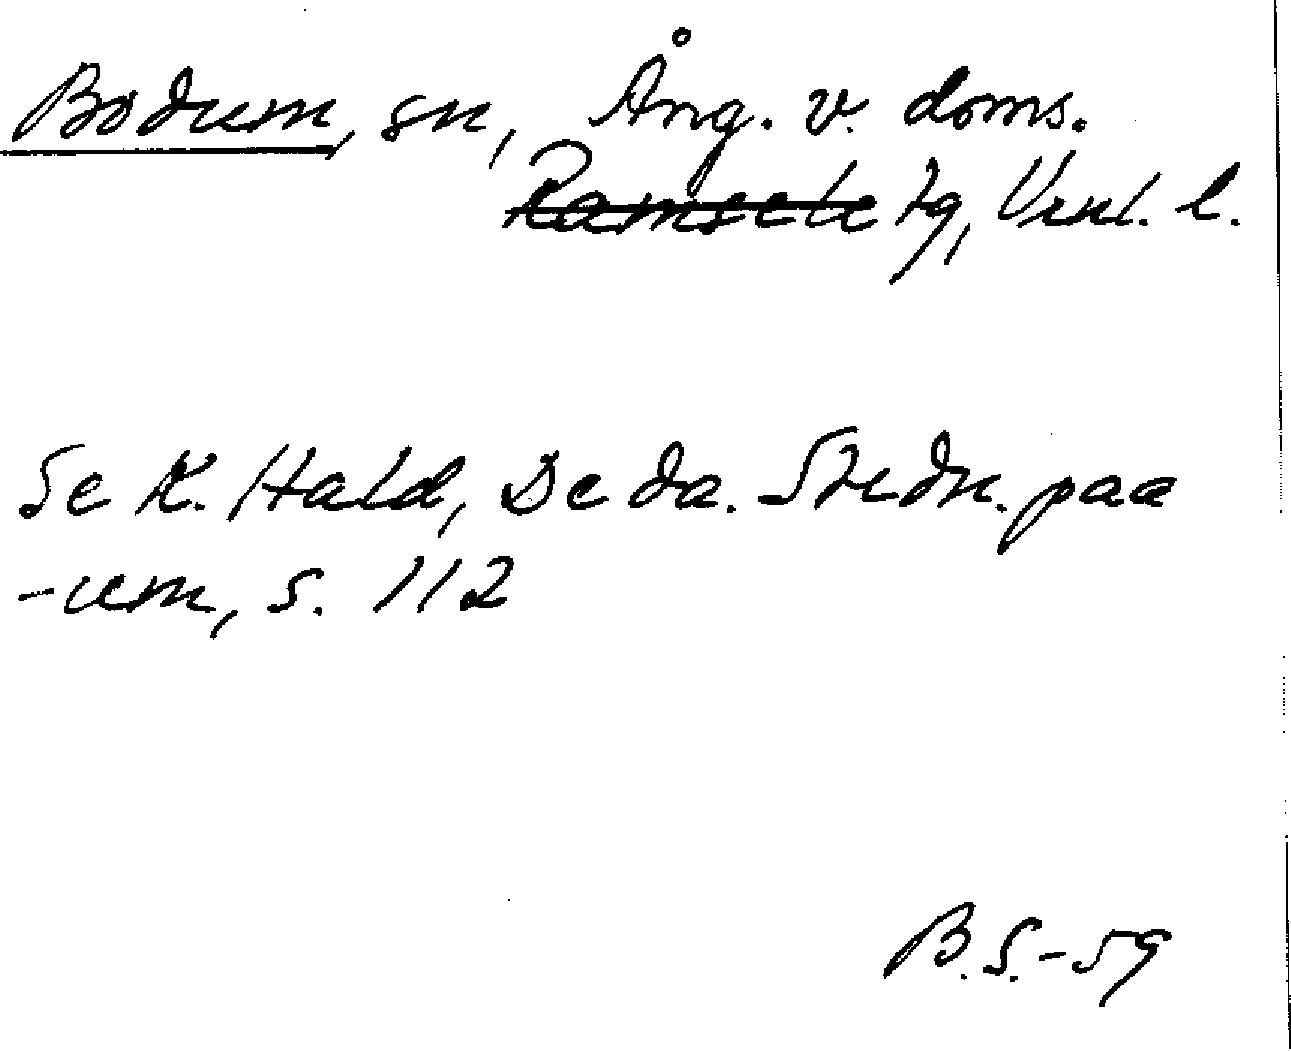 Bodum, sn, Ång. v. doms.
Ramsele tg, Vnl. l.
Se K. Hald, De da. Stedn. paa
-um, s. 112
B.S.-59